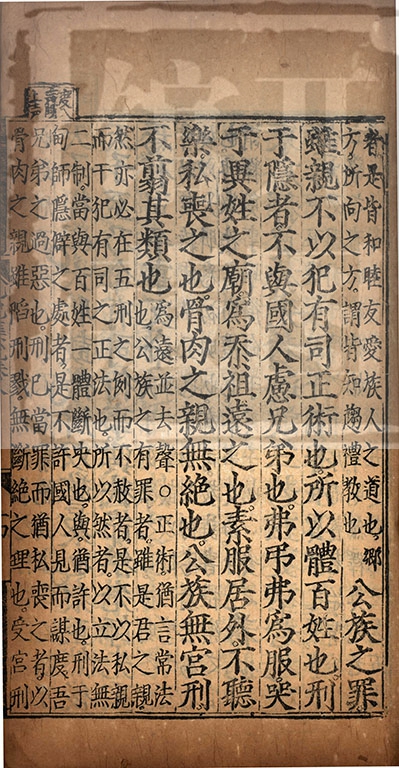 者是皆和睦友愛族人之道也鄉
方所向之方謂皆知趨禮教也
公族之罪
雖親不以犯有司正術也所以體百姓也刑
于隱者不與國人慮兄弟也弗弔弗爲服哭
于異姓之廟爲忝祖遠之也素服居外不聽
樂私喪之也骨肉之親無絶也公族無宮刑
不翦其類也
爲遠並去聲○正術猶言常法
也公族之有罪者雖是君之親
然亦必在五刑之例而不赦者是不以私親
而干犯有司之正法也所以然者以立法無
二制當與百姓一體斷決也與猶許也刑于
甸師隱僻之處者是不許國人見而謀度吾
兄弟之過惡也刑已當罪而猶私喪之者以
骨肉之親雖陷刑戮無斷絶之理也受宮刑